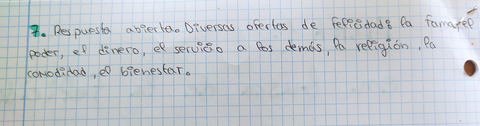 7. Respuesta abierta. Diversas ofertas de felicidad: la fama, el
poder, el dinero, el servicio a los demás, la religión, la
comodidad, el bienestar.